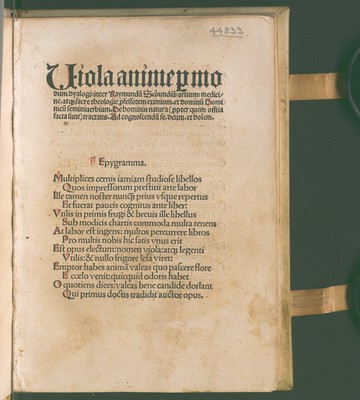 44833
Viola anime per mo
dum dyalogi: inter Raymundũ Sebundiũ artium medici-
ne. atq; sacre theologie p̃fessorem eximium. et dominũ Domi
nicũ seminiverbium. De hominis natura (ppter quem omnia
facta sunt) tractans. Ad cognoscendũ se. deum. et hoĩem.
¶ Epygramma.
Multiplices cernis iamiam studiose libellos
Quos impressorum prestitit arte labor
Ille tamen noster nunq̃ prius vsque repertus
Et fuerat paucis cognitus ante liber:
Vtilis in primis frugi & breuis ille libellus
Sub modicis chartis commoda multa tenens
At labor est ingens: multos percurrere libros
Pro multis nobis hic satis vnus erit
Est opus electum: nomen viola: atq; legenti
Vtilis: & nullo frigore lesa viret:
Emptor habes animã valeas quo pascere flore
E cœlo venit: quicquid odoris habet
O quotiens dices: valeas bene candide dorlant
Qui primus doctis tradidit auctor opus.